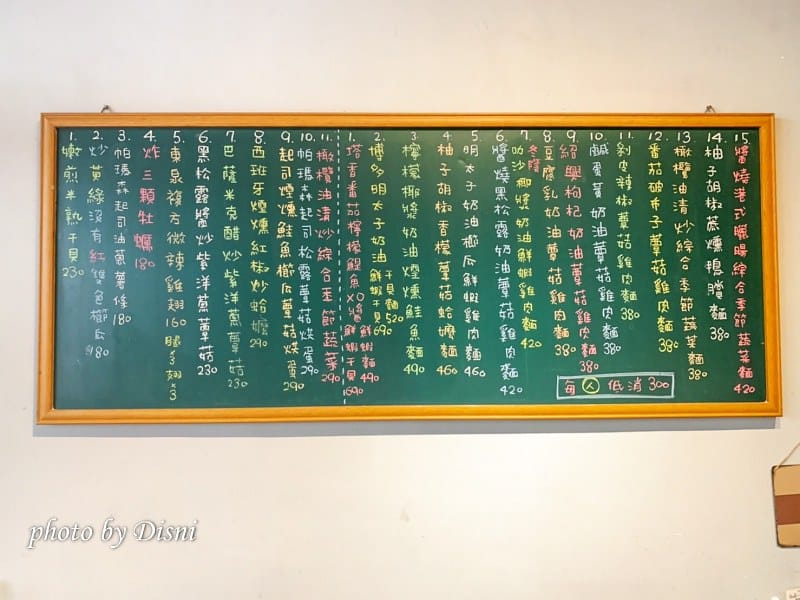 1. 嫩煎半熟干貝 230
2. 炒黃綠沒有紅雙色櫛瓜 180
3. 帕瑪森起司油蔥薯條 180
4. 炸三顆牡蠣 180
5. 東泉複方微辣雞翅 160 腿x3 翅x3
6. 黑松露醬炒紫洋蔥蕈菇 230
7. 巴薩米克醋炒紫洋蔥蕈菇 230
8. 西班牙煙燻紅椒炒蛤蠣 290
9. 起司煙燻鮭魚櫛瓜蕈菇烘蛋 290
10. 帕瑪森起司松露蕈菇烘蛋 290
11. 橄欖油清炒綜合季節蔬菜 290
1. 塔香番茄檸檬鯷魚XO醬鮮蝦麵 490 鮮蝦干貝 690
2. 博多明太子奶油鮮蝦干貝 690 干貝麵 520
3. 檸檬椰漿奶油煙燻鮭魚麵 490
4. 柚子胡椒香檬蕈菇蛤蠣麵 460
5. 明太子奶油櫛瓜鮮蝦雞肉麵 460
6. 醬燒黑松露奶油蕈菇雞肉麵 420
7. 叻沙椰漿奶油鮮蝦雞肉麵 420
8. 冬蔭豆腐乳奶油蕈菇雞肉麵 380
9. 紹興枸杞奶油蕈菇雞肉麵 380
10. 鹹蛋黃奶油蕈菇雞肉麵 380
11. 剝皮辣椒蕈菇雞肉麵 380
12. 番茄破布子蕈菇雞肉麵 380
13. 橄欖油清炒綜合季節蔬菜麵 380
14. 柚子胡椒蔗燻鴨臢麵 380
15. 醬燒港式臘腸綜合季節蔬菜麵 420
每人低消300
photo by Disni